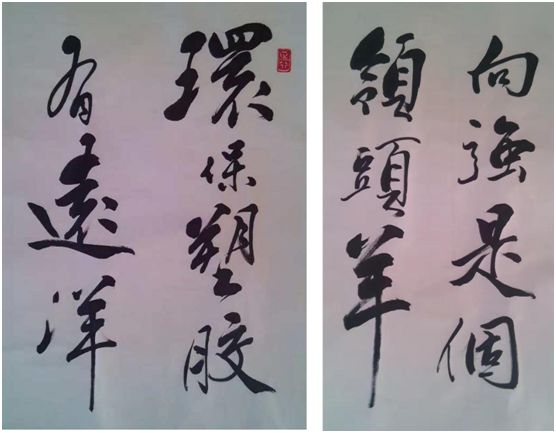 環保塑膠
有遠洋
向強是個
領頭羊